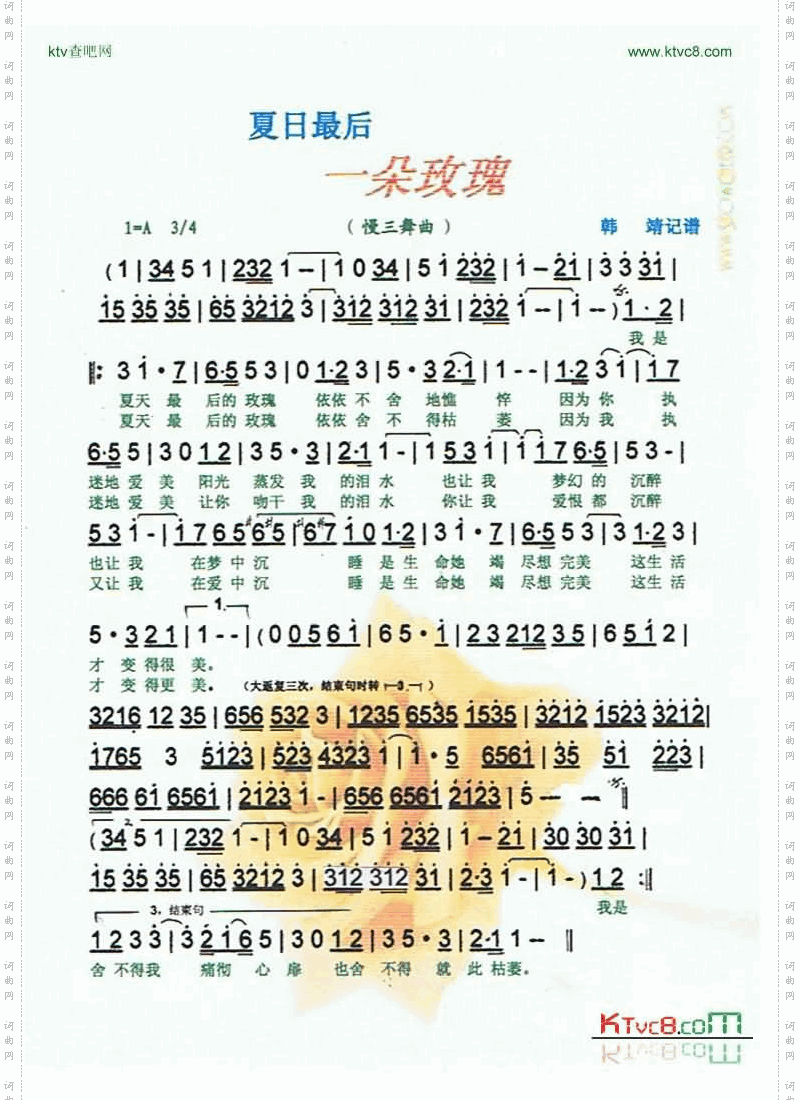 ktv查吧网 www.ktvc8.com
夏日最后
一朵玫瑰
1=A 3/4 （慢三舞曲） 韩 靖记谱
(1|34 5 1|232 1-|1 0 34|5 1 232|1-21|3 3 31|
15 35 35|65 3212 3|312 312 31|232 1--|1--)1·2|
我是
‖:3 1·7|6·5 5 3|0 1·2 3|5·3 2·1|1--|1·2 3 1|1 7
夏天 最 后的 玫瑰 依依 不 舍 地憔 悴 因为 你 执
夏天 最 后的 玫瑰 依依 舍 不 得枯 萎 因为 我 执
6·5 5|3 0 1 2|3 5·3|2·1 1-|1 5 3 1|1 1 7 6·5|5 3-|
迷地 爱 美 阳光 蒸发 我 的泪 水 也让 我 梦幻 的 沉醉
迷地 爱 美 让你 吻干 我 的泪 水 你让 我 爱恨 都 沉醉
5 3 1-|1 7 6 5 #6 5|#6 #6 7 1 0 1·2|3 1·7|6·5 5 3|3 1·2 3|
也让 我 在梦 中 沉 睡 是 生 命她 竭 尽想 完美 这生 活
又让 我 在爱 中 沉 睡 是 生 命她 竭 尽想 完美 这生 活
1.
5·3 2 1|1--|(0 0 5 6 1|6 5·1|2 3 2 12 3 5|6 5 1 2|
才 变 得很 美。
才 变 得更 美。 （大返复三次，结束句时转 3 ）
3216 12 35|656 532 3|1235 6535 1535|3212 1523 3212|
1765 3 5123|523 4323 1|1·5 6561|35 51 223|
666 61 6561|2123 1-|656 6561 2123|5-- - ‖
2
(34 5 1|232 1-|1 0 34|5 1 232|1-21|30 30 31|
15 35 35|65 3212 3|312 312 31|2·3 1-|1-)1 2 :‖
我是
3，结束句
1 2 3 3|3 2 1 6 5|3 0 1 2|3 5·3|2·1 1-- ‖
舍 不得我 痛彻 心 扉 也舍 不得 就 此 枯萎。
KTvc8.com